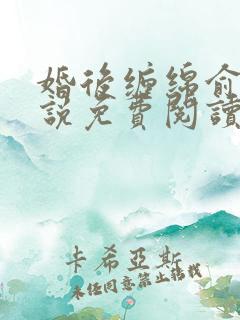 婚後纏綿俞
說免費閱讀
卡希亞斯
未經同意禁止轉載